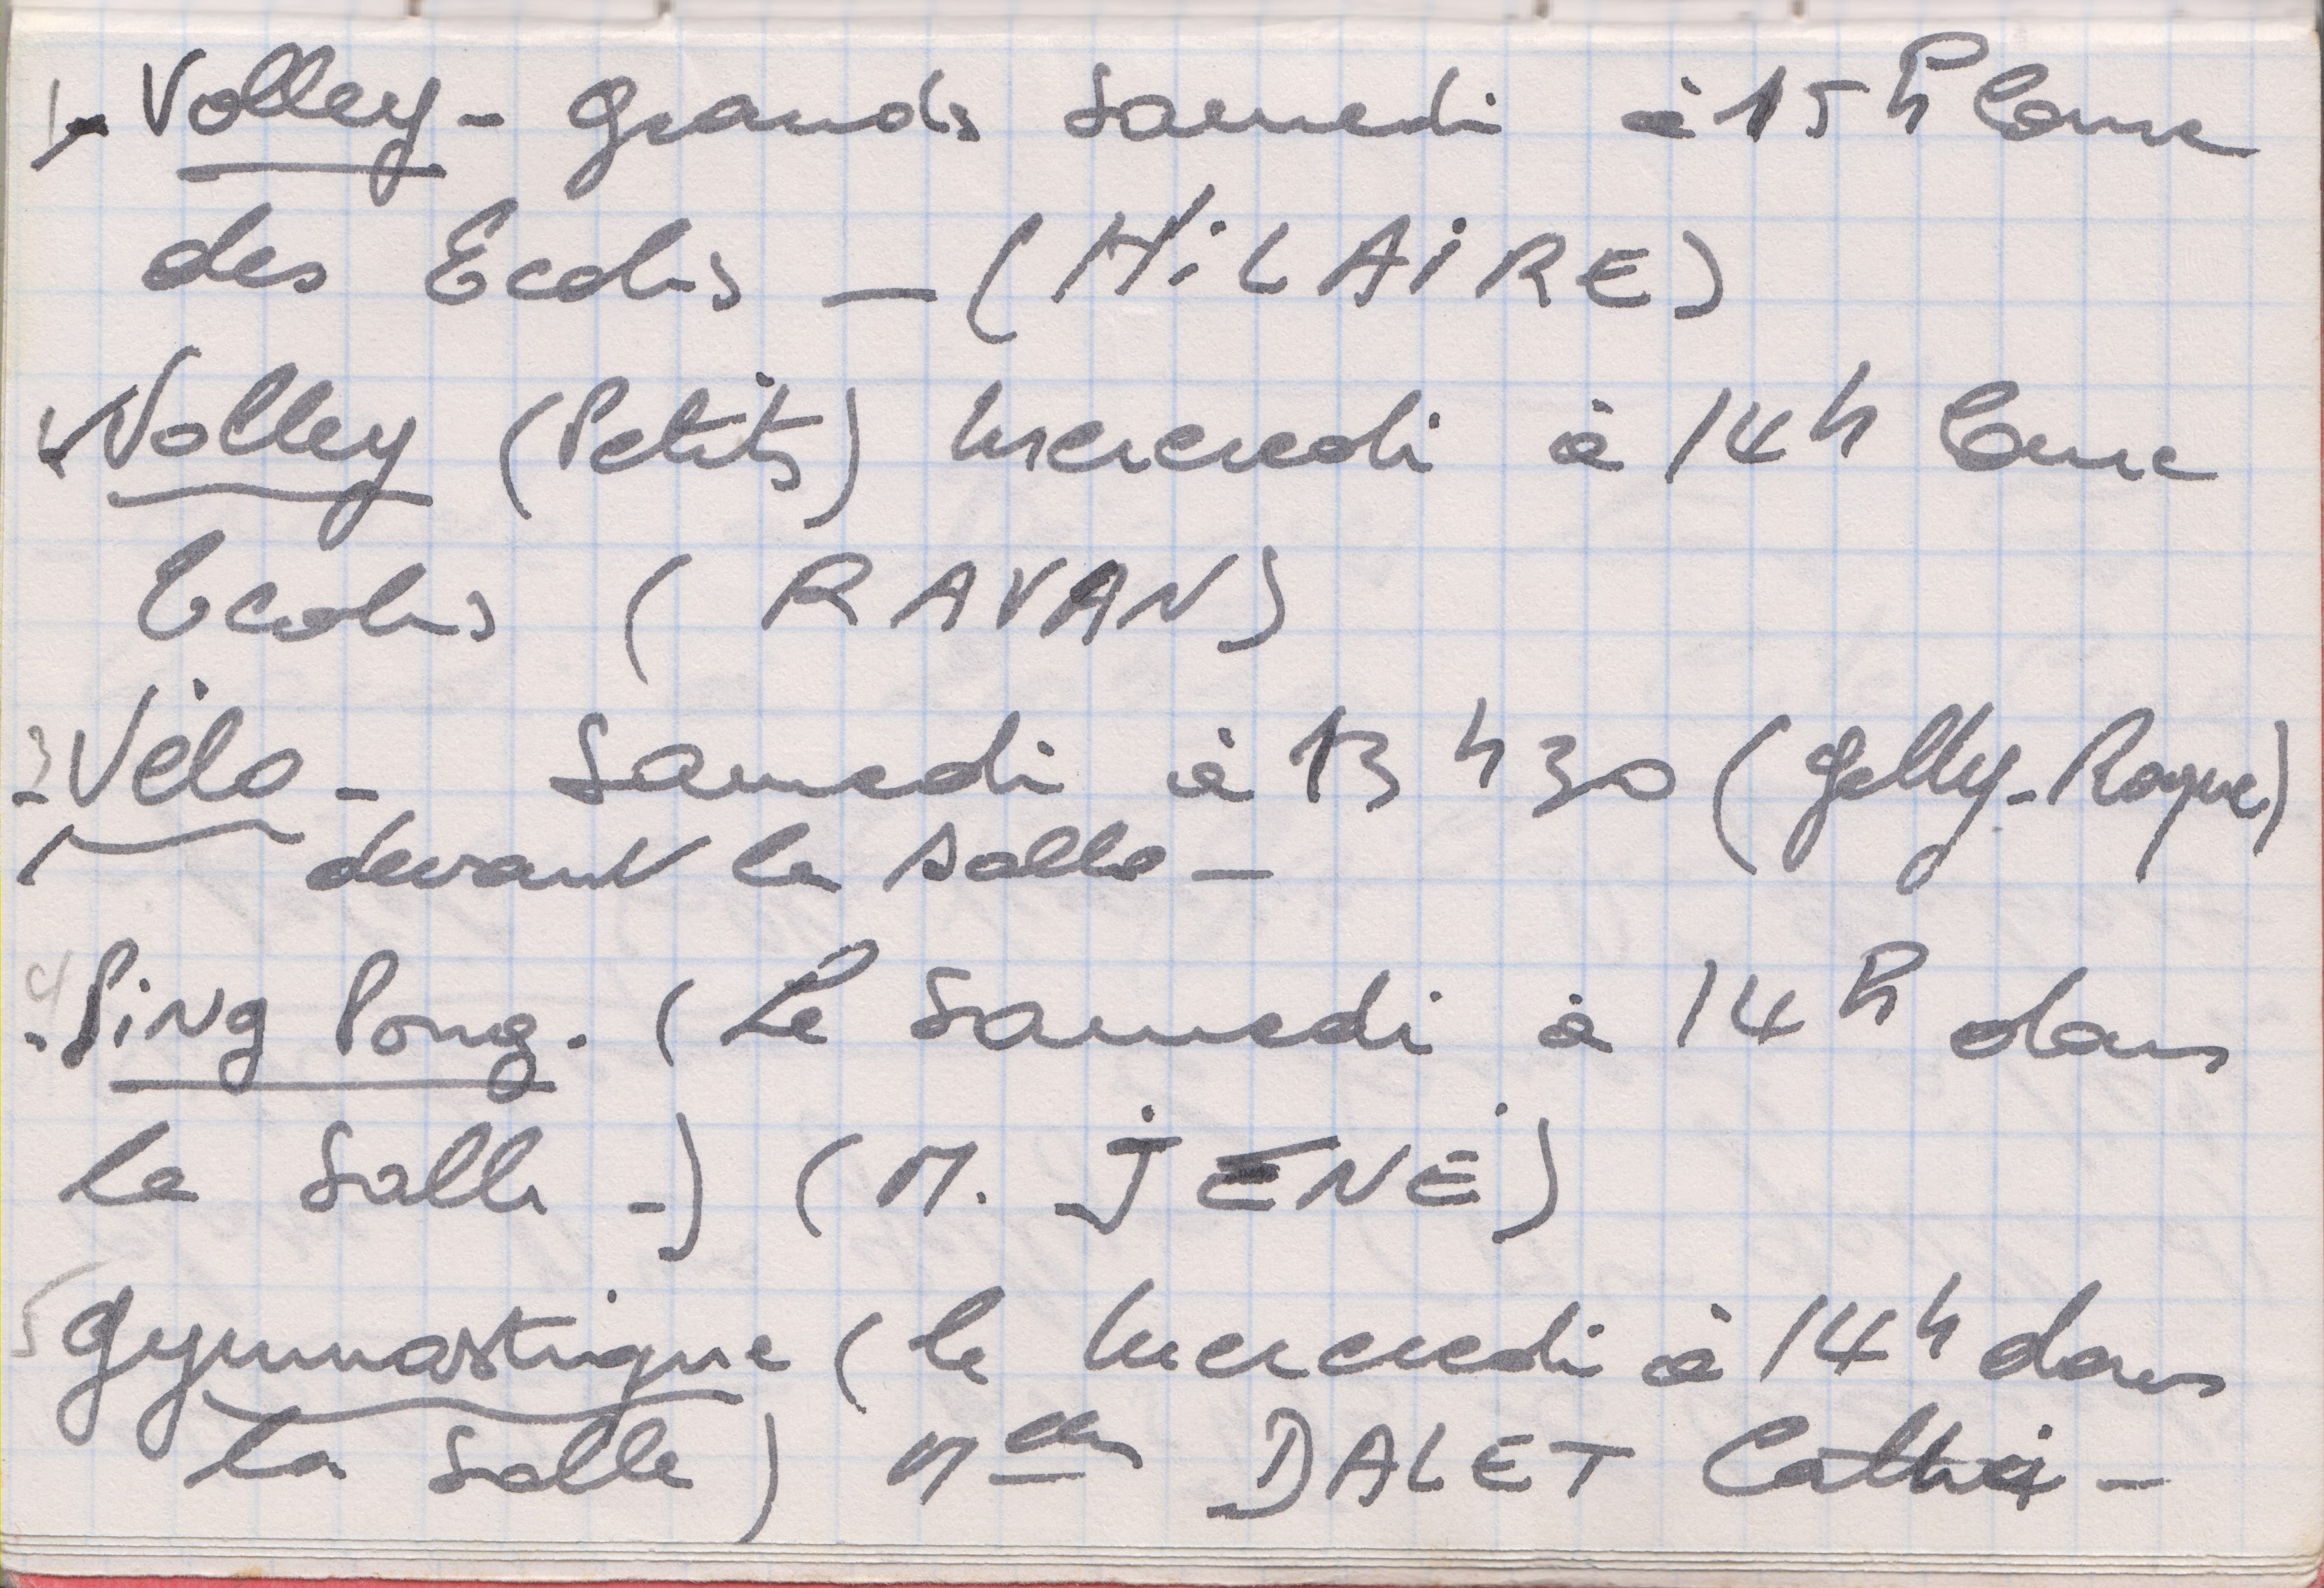 1- Volley - Grands Samedi à 15h Cour
des Ecoles - (HiLAiRE)
Volley (Petits) Mercredi à 14h Cour
Ecoles (RAVAN)
3 Vélo - Samedi à 13h30 (Gelly-Roque)
devant la salle -
4 Ping Pong. (Le Samedi à 14h dans
la Salle -) (M. JENÉ)
5 Gymnastique (le Mercredi à 14h dans
la Salle) Melles DALET Cathi -